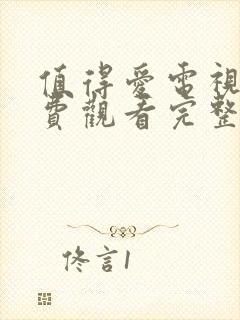 值得愛電視
費觀看完整
佟言1